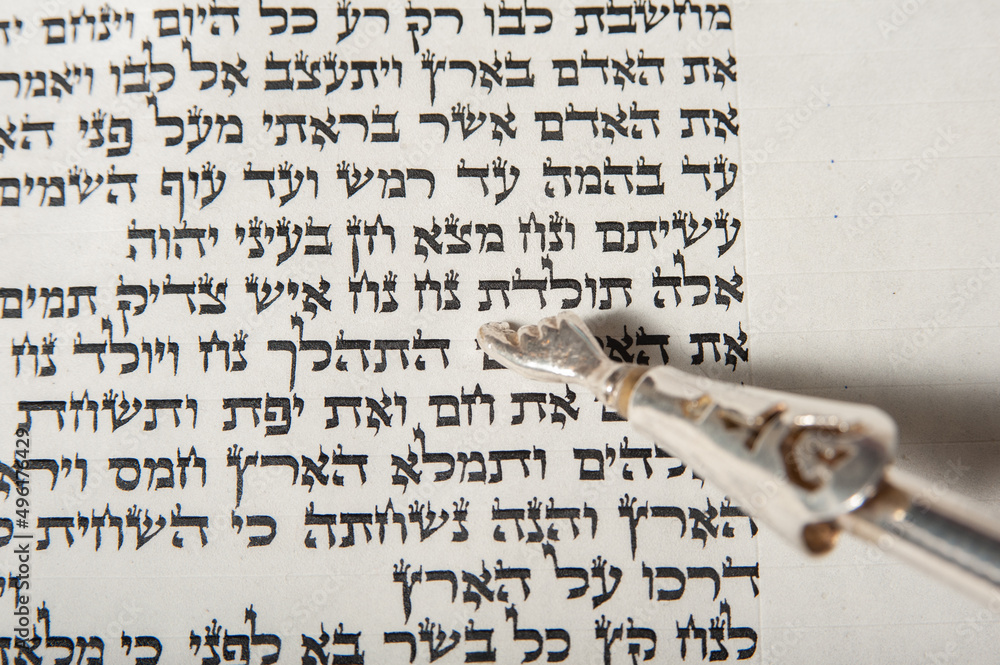 מחשבת לבו רק רע כל היום וינחם
את האדם בארץ ויתעצב אל לבו ויאמר
את האדם אשר בראתי מעל פני
עד בהמה עד רמש ועד עוף השמים
עשיתם ונח מצא חן בעיני יהוה
אלה תולדת נח נח איש צדיק תמים
את התהלך נח ויולד נח
את חם ואת יפת ותשחת
ותמלא הארץ חמס
הארץ והנה נשחתה כי השחית
דרכו על הארץ
לנח קץ כל בשר בא לפני כי
Adobe Stock | #496176429